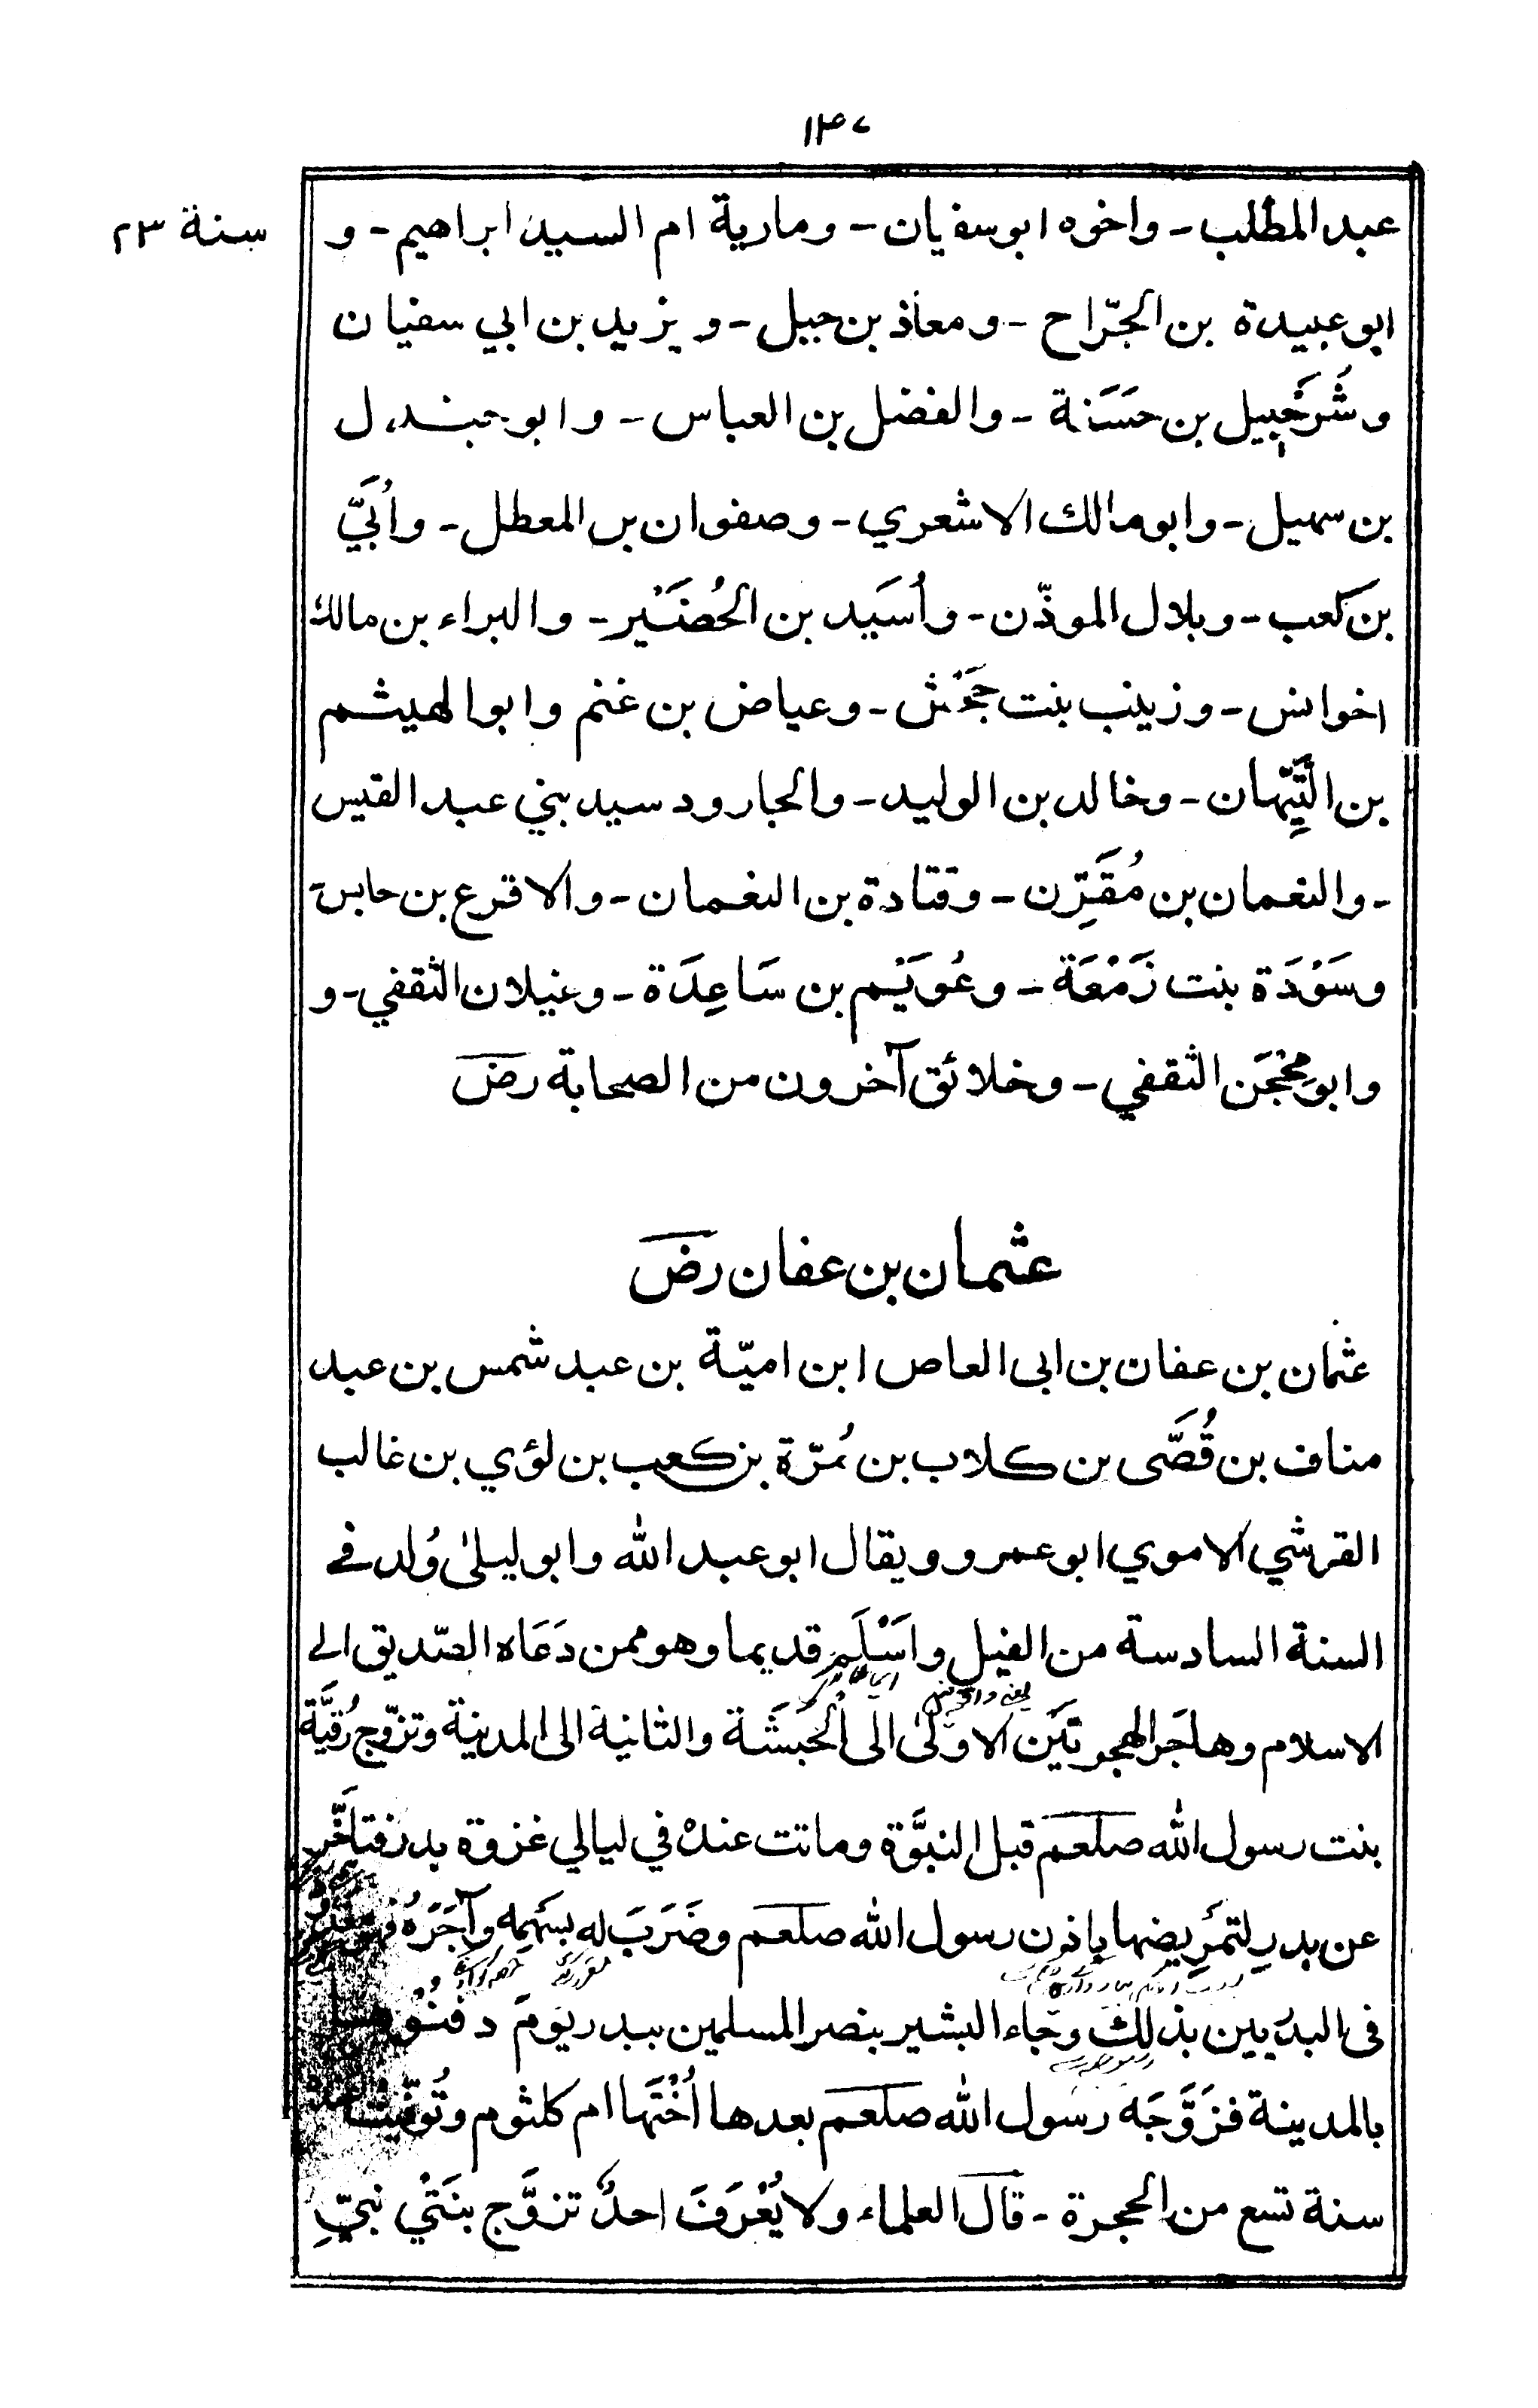 ١٤٧
سنة ٢٣
عبد المطلب - واخوه ابو سفيان - ومارية ام السيد ابراهيم - و
ابو عبيدة بن الجرّاح - ومعاذ بن جبل - ويزيد بن ابي سفيان
وشُرَحْبِيل بن حسَنَة - والفضل بن العباس - وابو جندل
بن سهيل - وابو مالك الاشعري - وصفوان بن المعطل - واُبَيّ
بن كعب - وبلال الموذّن - واُسَيد بن الحُضَيْر - والبراء بن مالك
اخو انس - وزينب بنت جَحْش - وعياض بن غنم وابو الهيثم
بن التَّيِّهان - وخالد بن الوليد - والجارود سيد بني عبد القيس
- والنعمان بن مُقَرِّن - وقتادة بن النعمان - والاقرع بن حابس -
وسَوْدَة بنت زَمْعَة - وعُوَيْم بن سَاعِدَة - وغيلان الثقفي - و
وابو مِحْجَن الثقفي - وخلائق آخرون من الصحابة رضؔ
عثمان بن عفان رضؔ
عثمان بن عفان بن ابى العاص ابن اميّة بن عبد شمس بن عبد
مناف بن قُصَّى بن كلاب بن مُرّة بن كعب بن لؤي بن غالب
القرشي الاموي ابو عمرو ويقال ابو عبد الله وابو ليلىٰ وُلد في
السنة السادسة من الفيل واَسْلَم قديما وهو ممن دَعَاه الصّديق الى
الاسلام وهاجَر الهجرتَين الاولىٰ الى الحَبَشَة والثانية الى المدينة وتزوّج رُقَيَّة
بنت رسول الله صلعم قبل النبوَّة وماتت عندهٗ في ليالي غزوة بدر فتاخَّر
عن بدرِ لتمَرِيضها باذن رسول الله صلعم وضَرَبَ له بسَهْمِه وآجَرَهُ فهو
فى البدريين بذلك وجاء البشير بنصر المسلمين ببدر يومَ دفنُوها
بالمدينة فزَوَّجَه رسول الله صلعم بعدها اُخْتَها ام كلثوم وتُوفِّيت عندهٗ
سنة تسع من الهجرة - قال العلماء ولا يُعْرَفَ احدٌ تزوَّج بنتَي نبيِّ